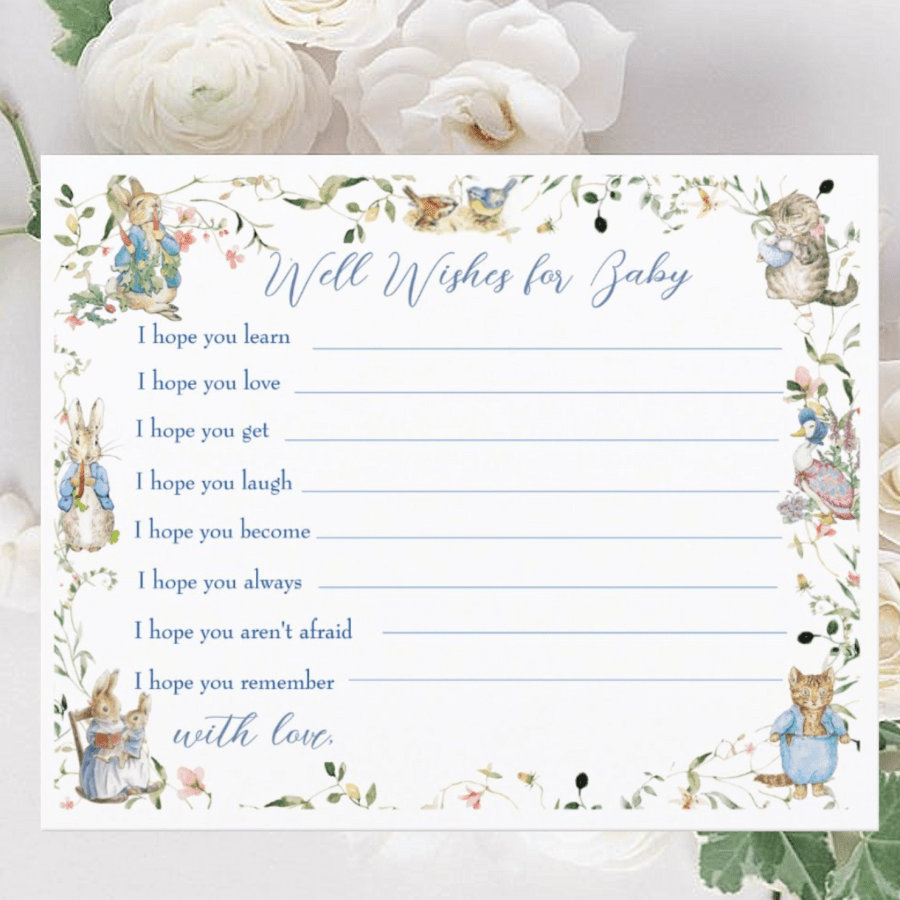 Well Wishes for Baby
I hope you learn
I hope you love
I hope you get
I hope you laugh
I hope you become
I hope you always
I hope you aren't afraid
I hope you remember
with love,